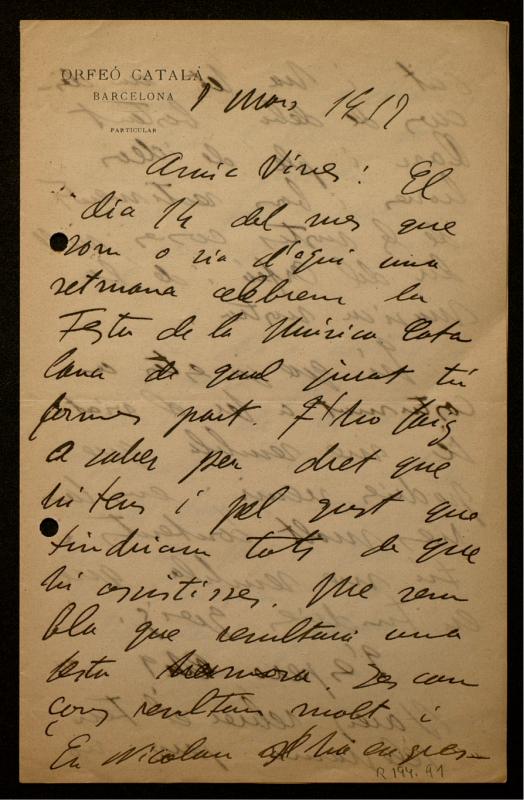 ORFEÓ CATALÁ
BARCELONA
PARTICULAR
Mars 1917
Amic Vives: El
dia 14 del mes que
som o sia d'aqui una
setmana celebrem la
Festa de la Música Cata
lana de qual jurat tú
formes part. T'ho faig
a saber per dret que
hi tens i pel gust que
tindriam tots de que
hi assistisses. Me sem
bla que resultará una
festa. Les can
çons resultan molt i
En Nicolau
R 194.91